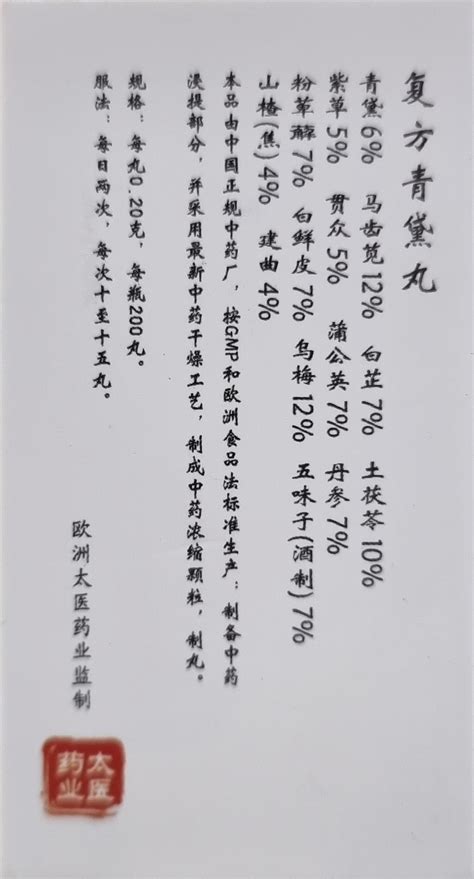 复方青黛丸
青黛6% 马齿苋12% 白芷7% 土茯苓10%
紫草5% 贯众5% 蒲公英7% 丹参7%
粉萆薢7% 白鲜皮7% 乌梅12% 五味子(酒制)7%
山楂(焦)4% 建曲4%
本品由中国正规中药厂,按GMP和欧洲食品法标准生产:制备中药
浸提部分,并采用最新中药干燥工艺,制成中药浓缩颗粒,制丸。
规格:每丸0.20克,每瓶200丸。
服法:每日两次,每次十至十五丸。
欧洲太医药业监制
太医
药业